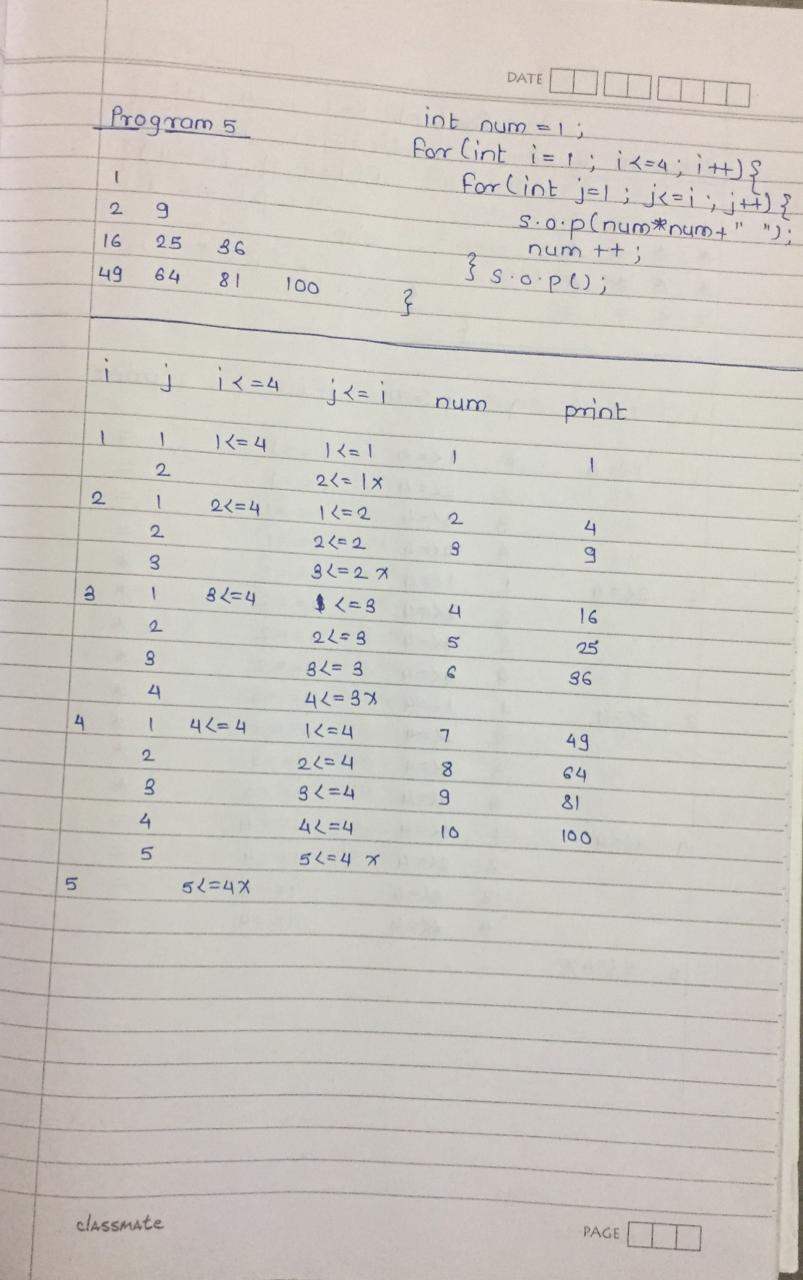 DATE
Program 5
int num = 1 ;
for (int i = 1 ; i <= 4 ; i++) {
for (int j=1 ; j<=i ; j++) {
s.o.p(num*num+" ");
num ++ ;
} s.o.p() ;
}
1
2 9
16 25 36
49 64 81 100
i j i<=4 j<=i num print
1 1 1<=4 1<=1 1 1
2 2<=1x
2 1 2<=4 1<=2 2 4
2 2<=2 3 9
3 3<=2 x
3 1 3<=4 1<=3 4 16
2 2<=3 5 25
3 3<=3 6 36
4 4<=3x
4 1 4<=4 1<=4 7 49
2 2<=4 8 64
3 3<=4 9 81
4 4<=4 10 100
5 5<=4 x
5 5<=4x
classmate
PAGE